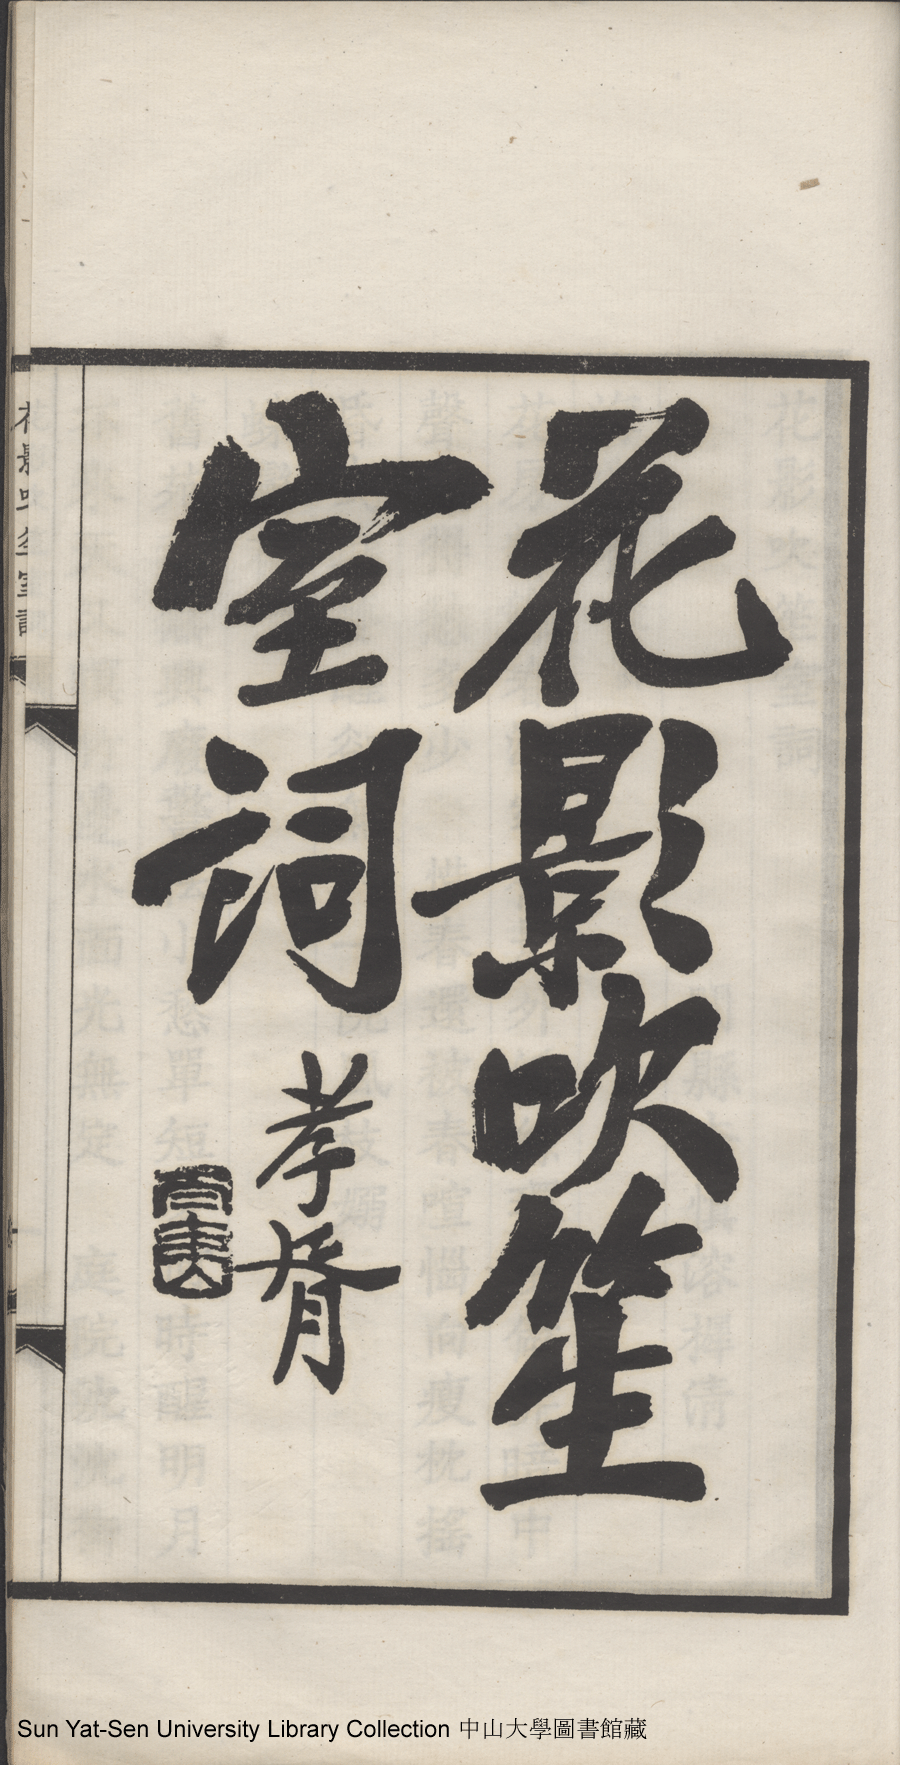 花影吹笙
室詞
孝胥
花影吹笙室詞
Sun Yat-Sen University Library Collection 中山大學圖書館藏